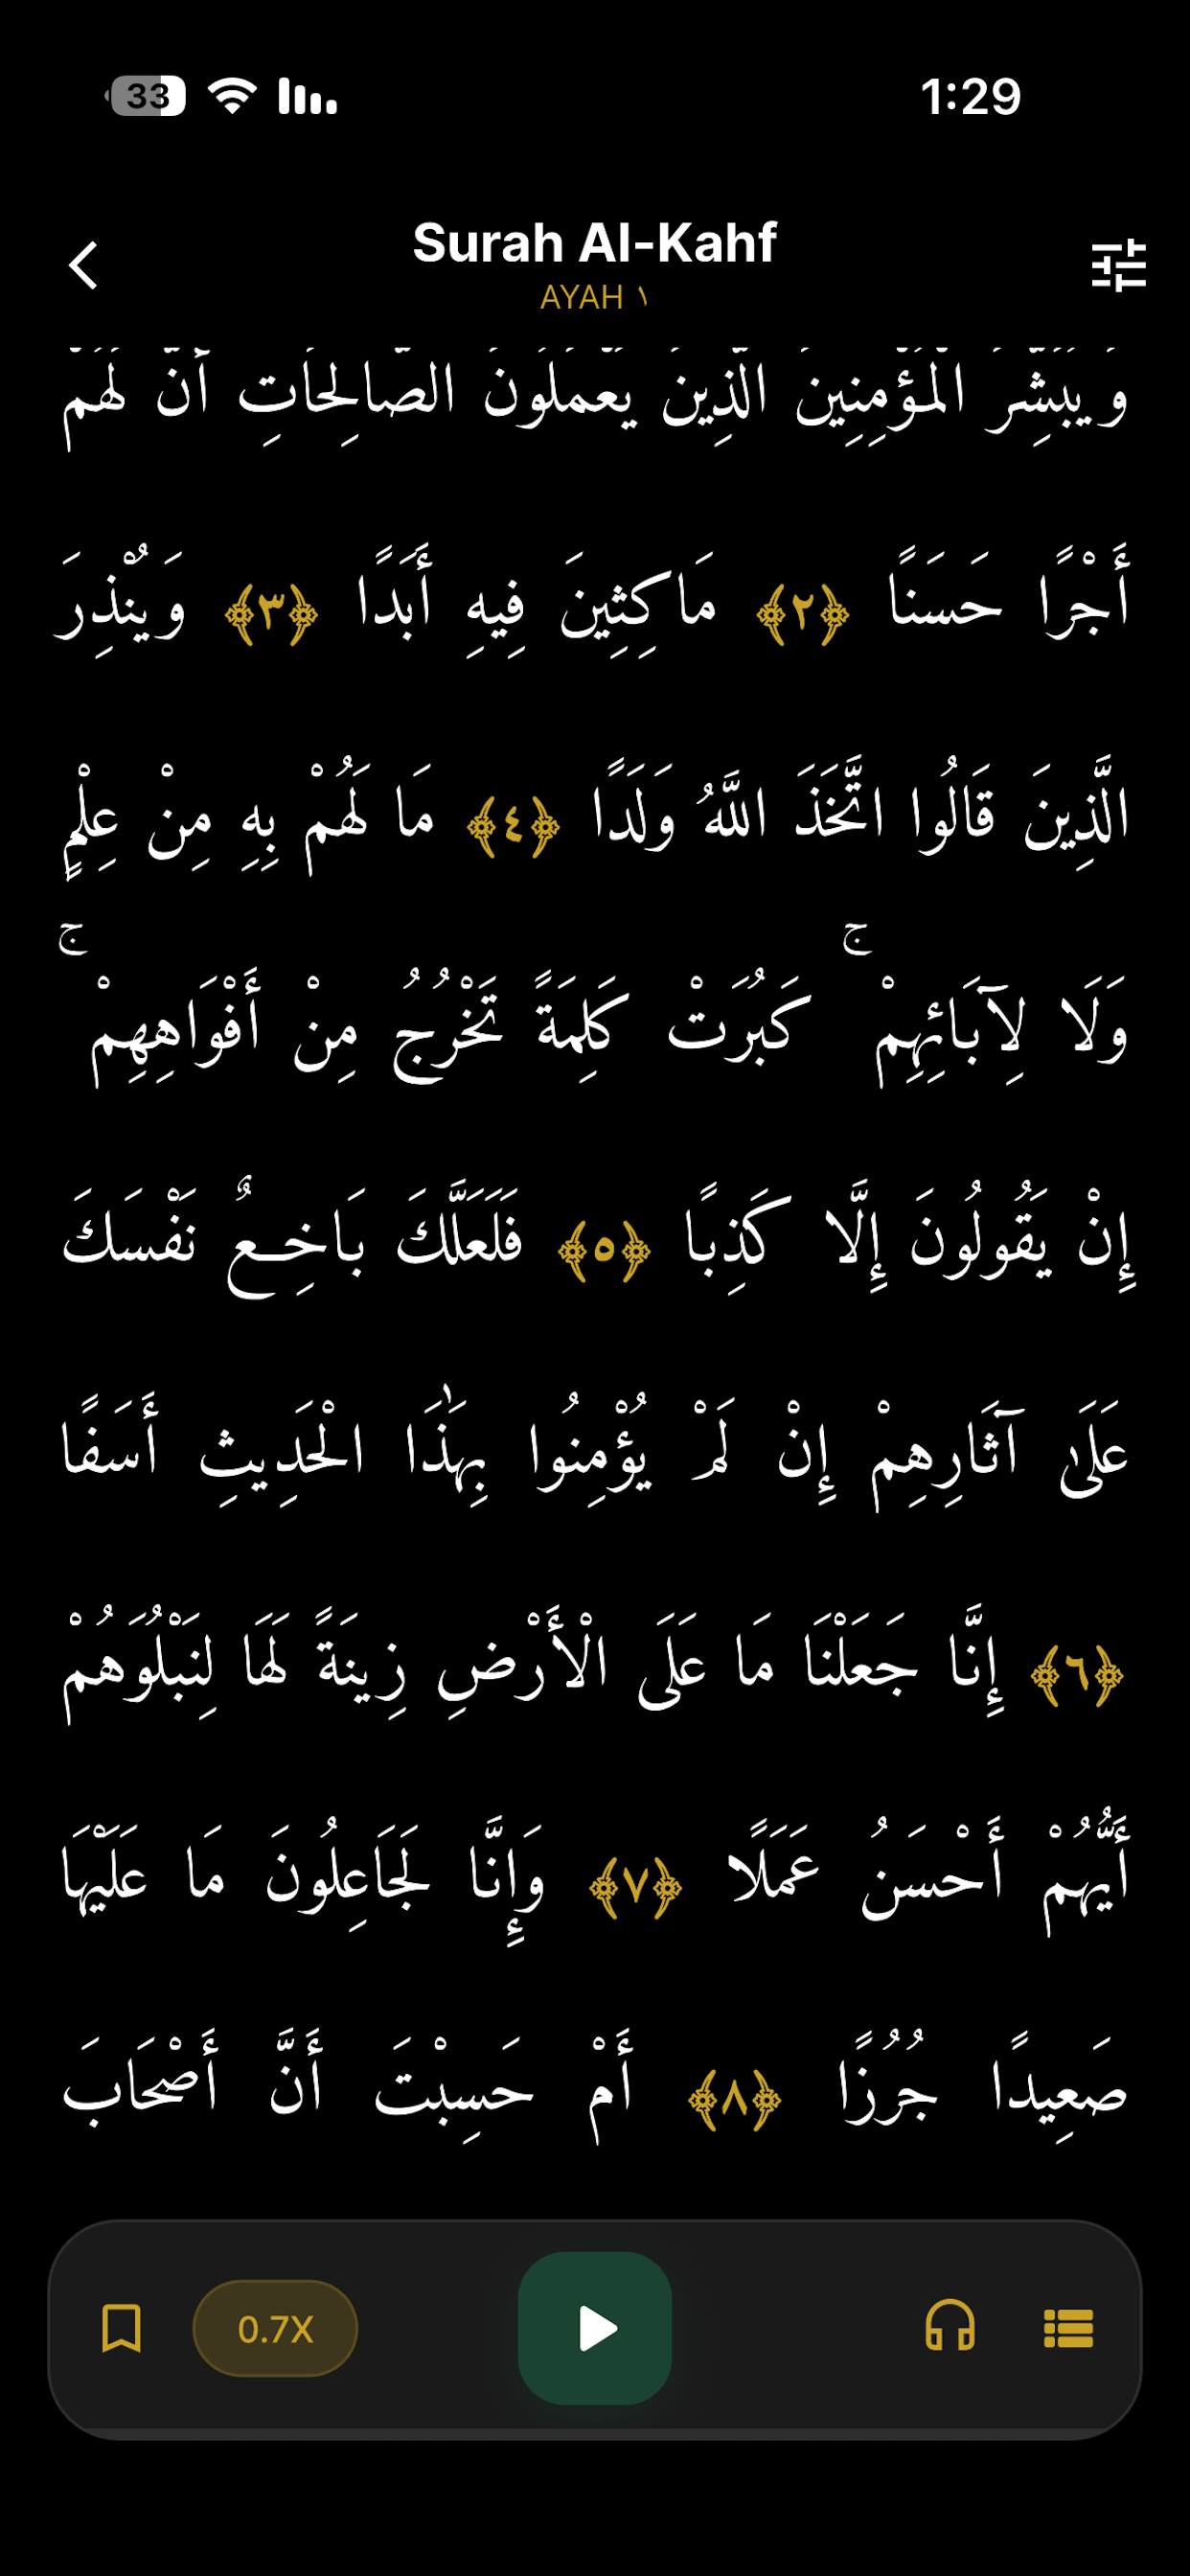 33
1:29
Surah Al-Kahf
AYAH ١
وَيُبَشِّرَ الْمُؤْمِنِينَ الَّذِينَ يَعْمَلُونَ الصَّالِحَاتِ أَنَّ لَهُمْ
أَجْرًا حَسَنًا ﴿٢﴾ مَاكِثِينَ فِيهِ أَبَدًا ﴿٣﴾ وَيُنْذِرَ
الَّذِينَ قَالُوا اتَّخَذَ اللَّهُ وَلَدًا ﴿٤﴾ مَا لَهُمْ بِهِ مِنْ عِلْمٍ
وَلَا لِآبَائِهِمْ ۚ كَبُرَتْ كَلِمَةً تَخْرُجُ مِنْ أَفْوَاهِهِمْ ۚ
إِنْ يَقُولُونَ إِلَّا كَذِبًا ﴿٥﴾ فَلَعَلَّكَ بَاخِعٌ نَفْسَكَ
عَلَىٰ آثَارِهِمْ إِنْ لَمْ يُؤْمِنُوا بِهَٰذَا الْحَدِيثِ أَسَفًا
﴿٦﴾ إِنَّا جَعَلْنَا مَا عَلَى الْأَرْضِ زِينَةً لَهَا لِنَبْلُوَهُمْ
أَيُّهُمْ أَحْسَنُ عَمَلًا ﴿٧﴾ وَإِنَّا لَجَاعِلُونَ مَا عَلَيْهَا
صَعِيدًا جُرُزًا ﴿٨﴾ أَمْ حَسِبْتَ أَنَّ أَصْحَابَ
0.7X